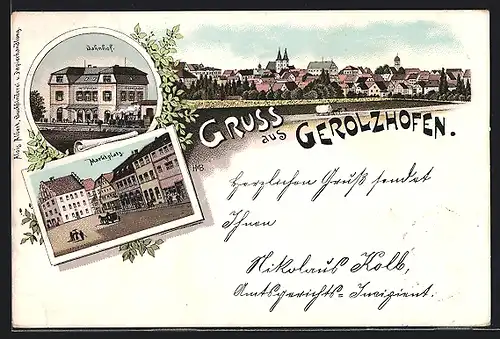 Bahnhof.
GRUSS
aus
GEROLZHOFEN.
Marktplatz.
HB
Herzlichen Gruß sendet
Ihnen
Nikolaus Kolb,
Amtsgerichts-Incipient.